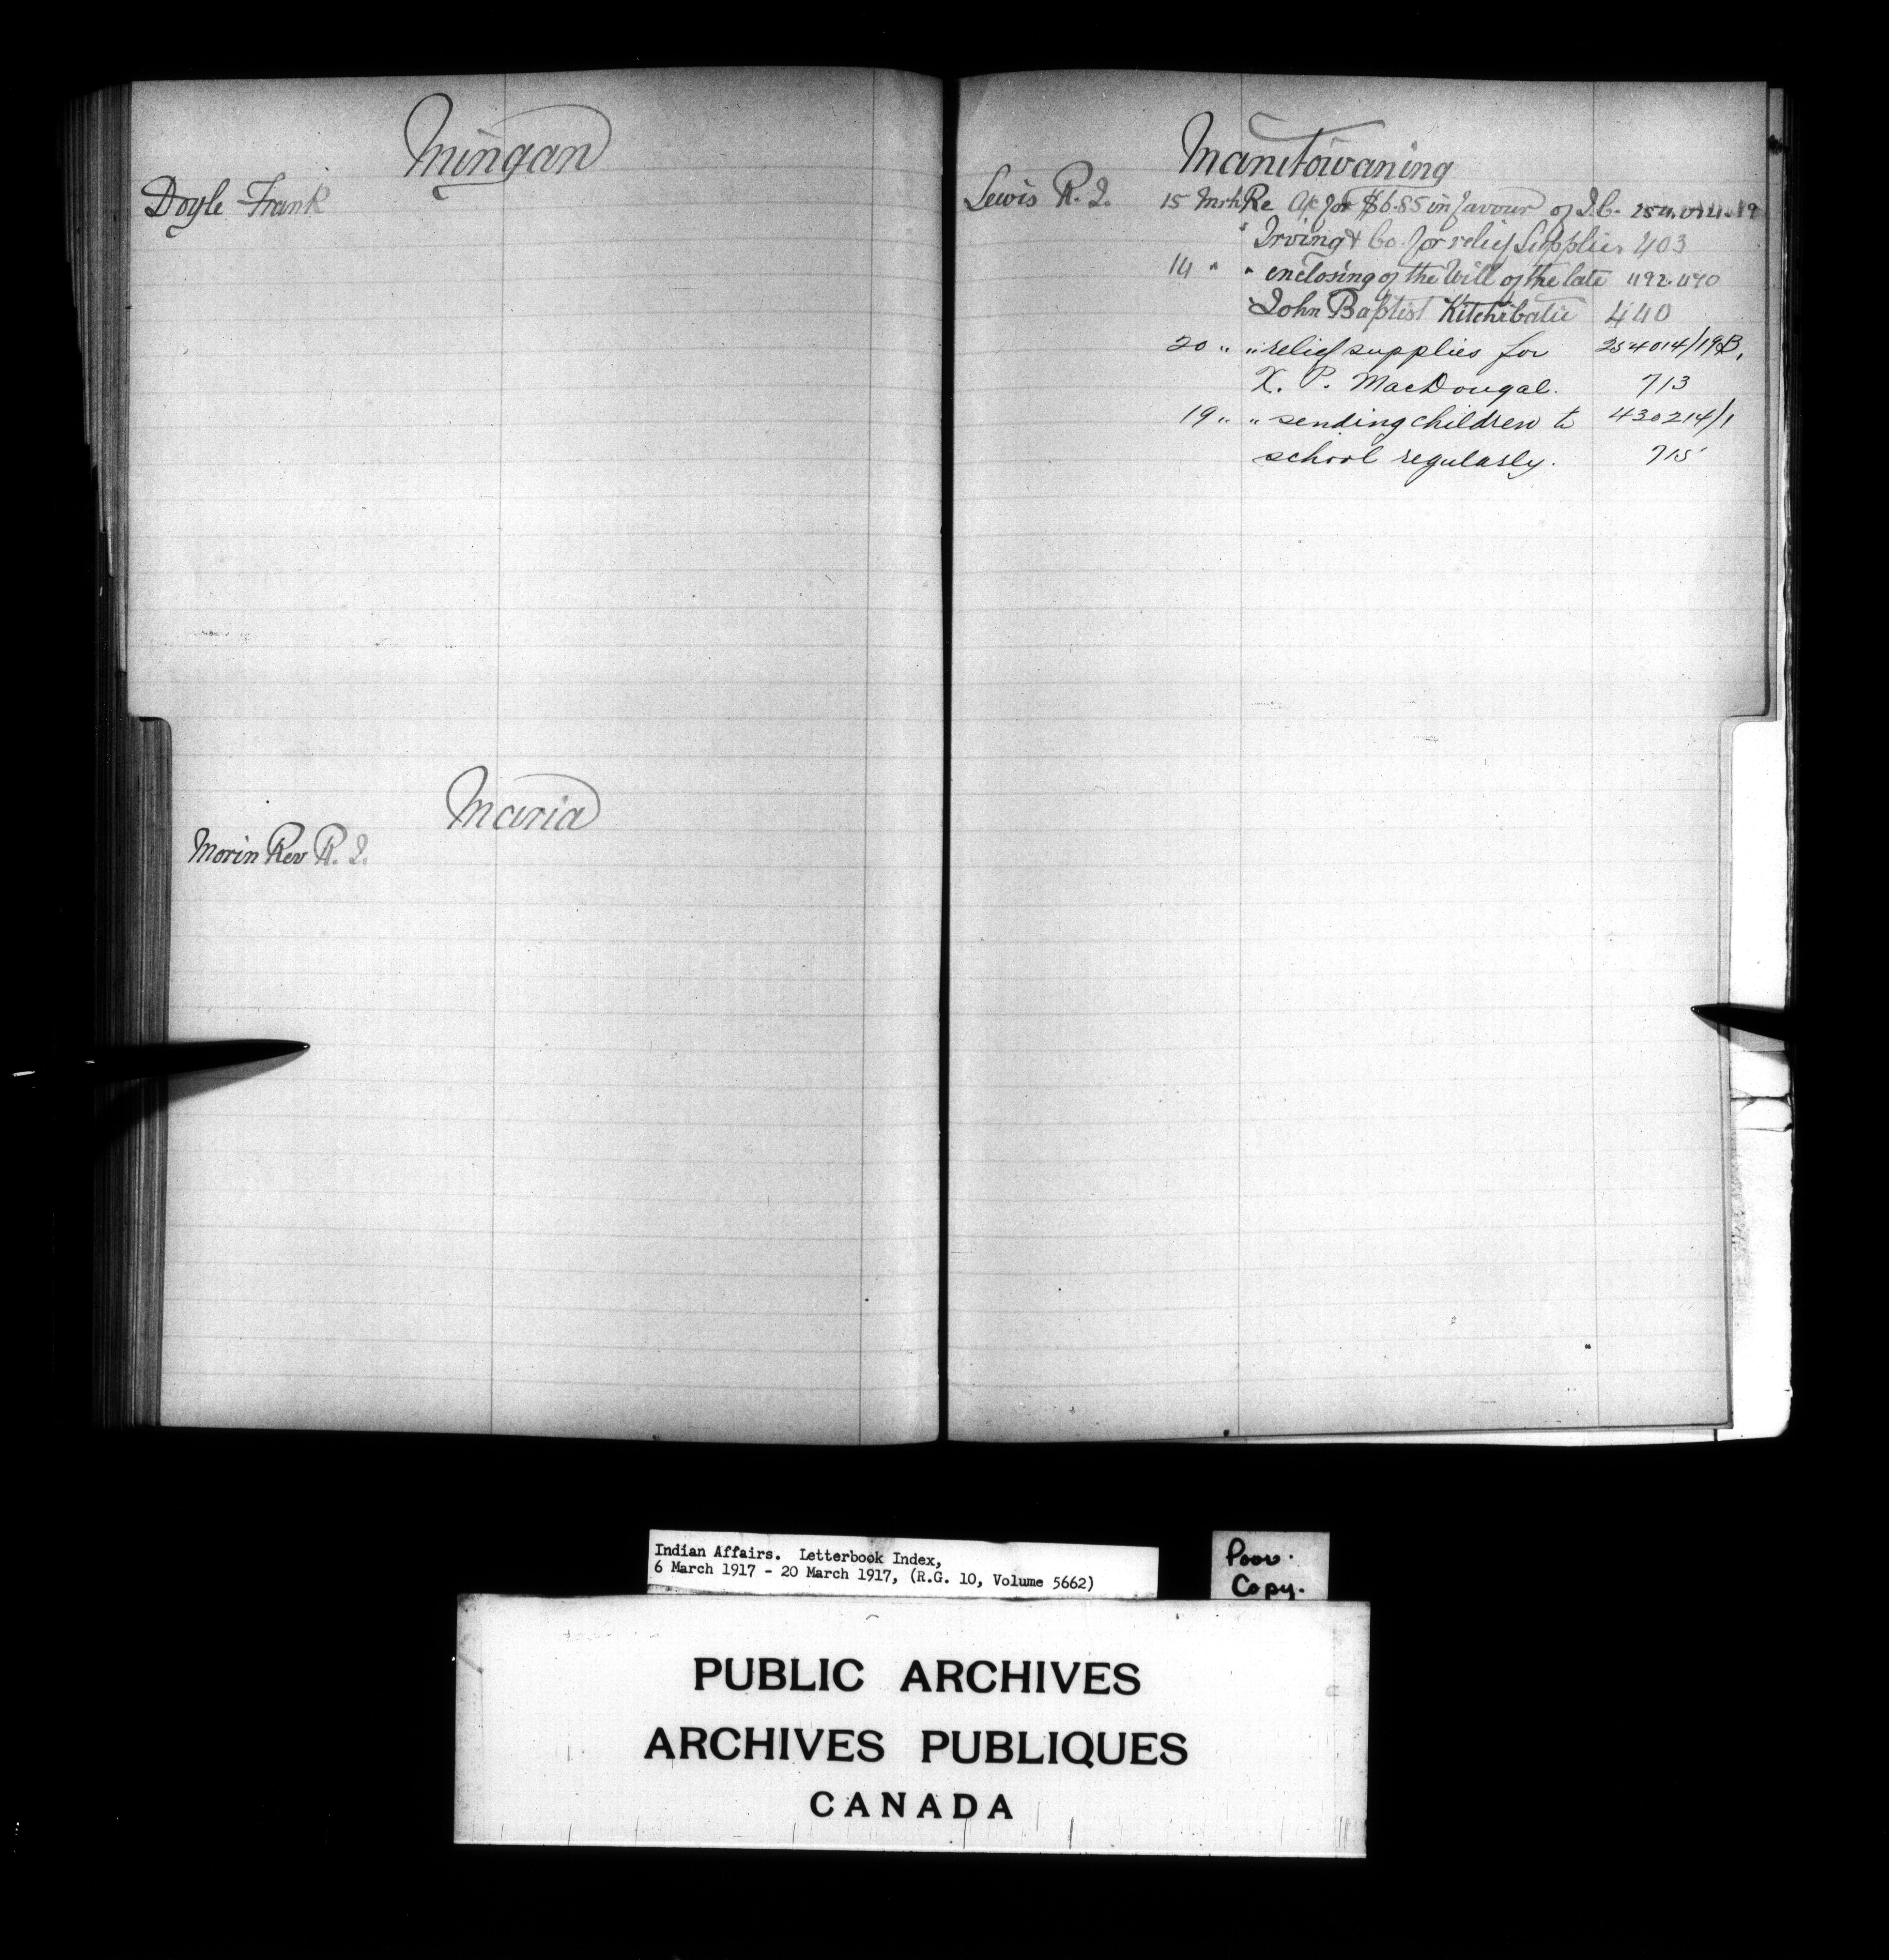 Mingan
Doyle Frank
Maria
Morin Rev R. J.
Manitowaning
Lewis R. J. 15 Mrh Re A/c for $6.85 in favour of J.C.
Irving & Co. for relief Supplies 403
14 " " enclosing of the Will of the late 492.470
John Baptist 440
20 " " relief supplies for 254014/19B,
X. P. MacDougal. 713
19 " " sending children to 430214/1
school regularly. 715
Indian Affairs. Letterbook Index,
6 March 1917 - 20 March 1917, (R.G. 10, Volume 5662)
Poor.
Copy.
PUBLIC ARCHIVES
ARCHIVES PUBLIQUES
CANADA